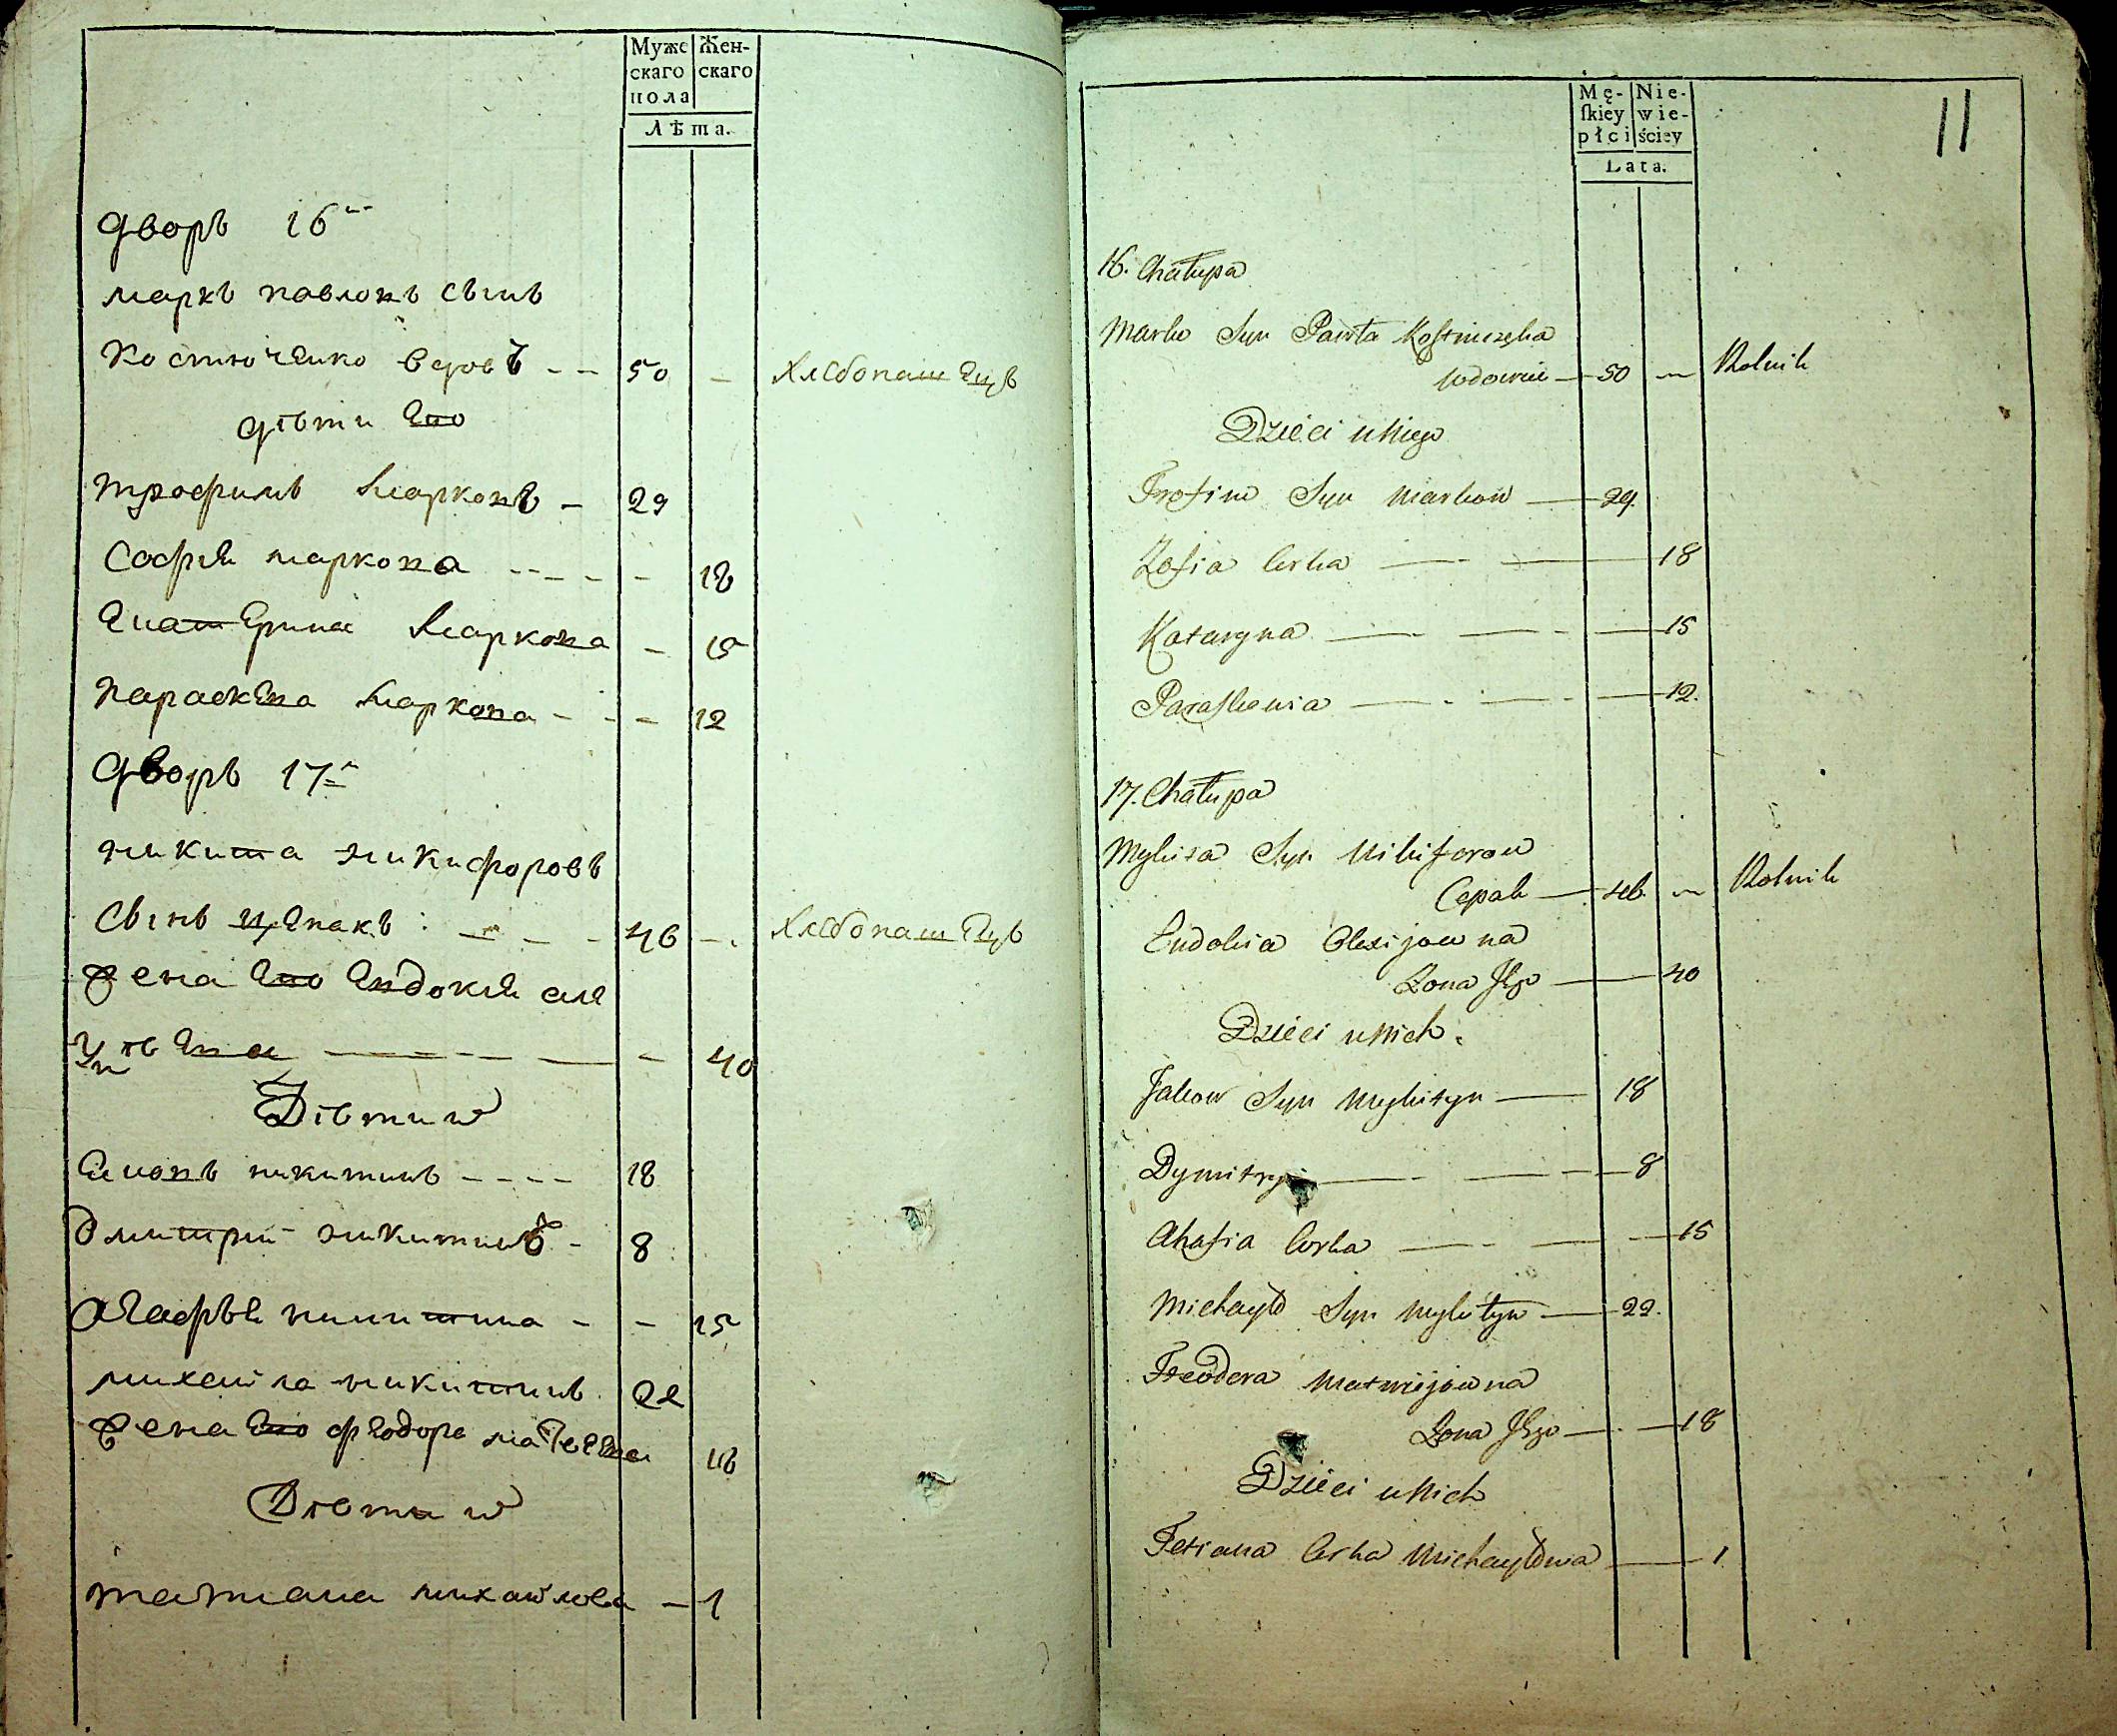 Муже
скаго
пола
Жен-
скаго
Лѣта.
дворъ 16й
маркъ павловъ сынъ
Костюченко вдовъ - - 50 - хлебопашецъ
дѣти его
трофимъ марковъ - 29
София маркова - - - - - 18
Екатерина маркова - 15
параскева маркова - - - 12
дворъ 17й
никита никифоровъ
сынъ цепакъ - - - 46 - хлебопашецъ
жена его евдокия оле
ѯѣева - - - - - - 40
Дѣти ихъ
яковъ никитинъ - - - - 18
дмитрий никитинъ - 8
агафья никитина - - 15
михайла никитинъ 22
жена его феодора матвеева 18
Дѣти ихъ
татиана михайлова - 1
Mę-
ſkiey
płci
Nie-
wie-
ściey
Lata.
11
16. Chałupa
Marko Syn Pawła Kostiuczęka
Wdowiec — 50 — Rolnik
Dzieci u Niego
Trofim Syn Markow — 29.
Zofia Corka — — 18
Kataryna — — — 15
Paraskewia — - — - — 12.
17. Chałupa
Mykita Syn Nikiforow
Cepak — 46 — Rolnik
Eudokia Olexijowna
Żona Jego — 40
Dzieci u Nich.
Jakow Syn Mykityn — 18
Dymitryi — - — - — 8
Ahafia Corka — - — - — 15
Michayło Syn Mykityn — 22.
Feodora Matwiejowna
Żona Jego — - — 18
Dzieci u Nich
Tetiana Corka Michayłowa — 1.